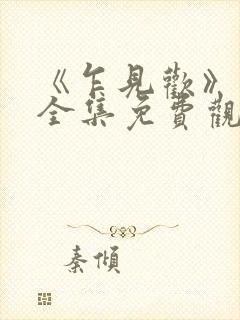 《乍見歡》
全集免費觀
秦傾